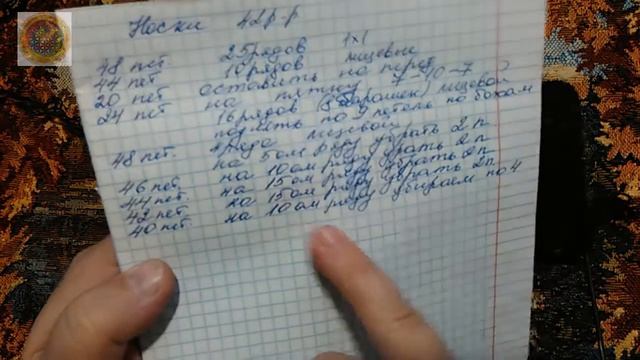 Носки 42 р.р
48 пет. 25 рядов 1х1
44 пет 10 рядов лицевые
20 пет оставить на перед
24 пет на пятку 7-10-7
16 рядов (8 барашек) лицевой
поднять по петель по бокам
48 пет. 4 ряда лицевой
на 5ом ряду убрать 2 п
46 пет. на 10ом ряду убрать 2 п
44 пет. на 15ом ряду убрать 2 п
42 пет. на 15ом ряду убрать 2 п
40 пет. на 10ом ряду убираем по 4